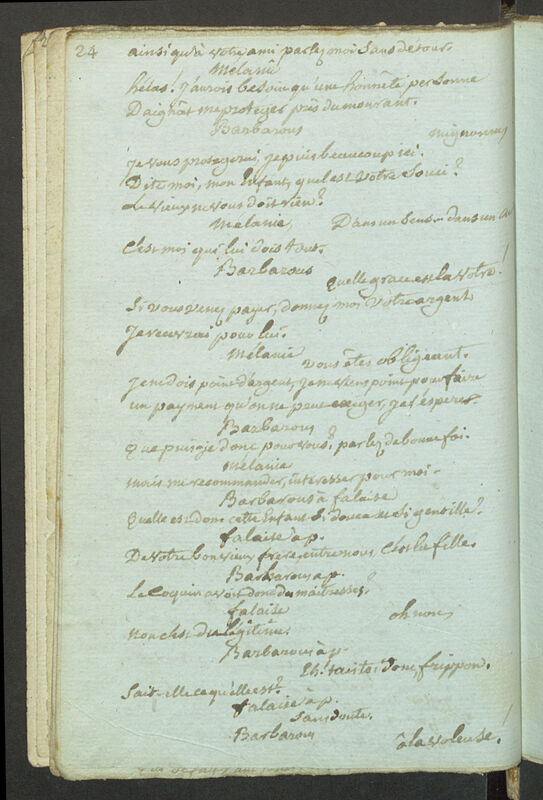 24 ainsi qu'à votre ami parlez moi sans détour.
Mélanie
hélas! j'aurois besoin qu'une honnête personne
Daignât me proteger près du mourant.
Barbarous
mignonne,
je vous protegerai, je puis beaucoup ici.
Dite moi, mon Enfant, quel est votre souci?
Le vieux ne vous doit rien?
Melanie, Dans un sens - dans un
C'est moi qui lui dois tout.
Barbarous
quelle grace est la votre!
Si vous venez payer, donnez moi votre argent
Je recevrai pour lui.
Mélanie
vous êtes obligeant.
je ne dois point d'argent, je ne viens point pour faire
un payment qu'on ne peut exiger, j'espere
Barbarous
que puis je donc pour vous? parlez de bonne foi.
Mélanie
mais me recommander, interesser pour moi -
Barbarous à falaise
quelle est donc cette Enfant si douce et si gentille?
falaise à p.
De votre bon vieux frere, entre nous c'est la fille.
Barbarous à p.
Le Coquin avoit donc du maitresses?
falaise
oh non,
non c'est du légitime.
Barbarous à p.
Eh! tais toi donc, frippon.
Sait-elle ce qu'elle est?
falaise à p.
Sans doute.
Barbarous
ô la voleuse!